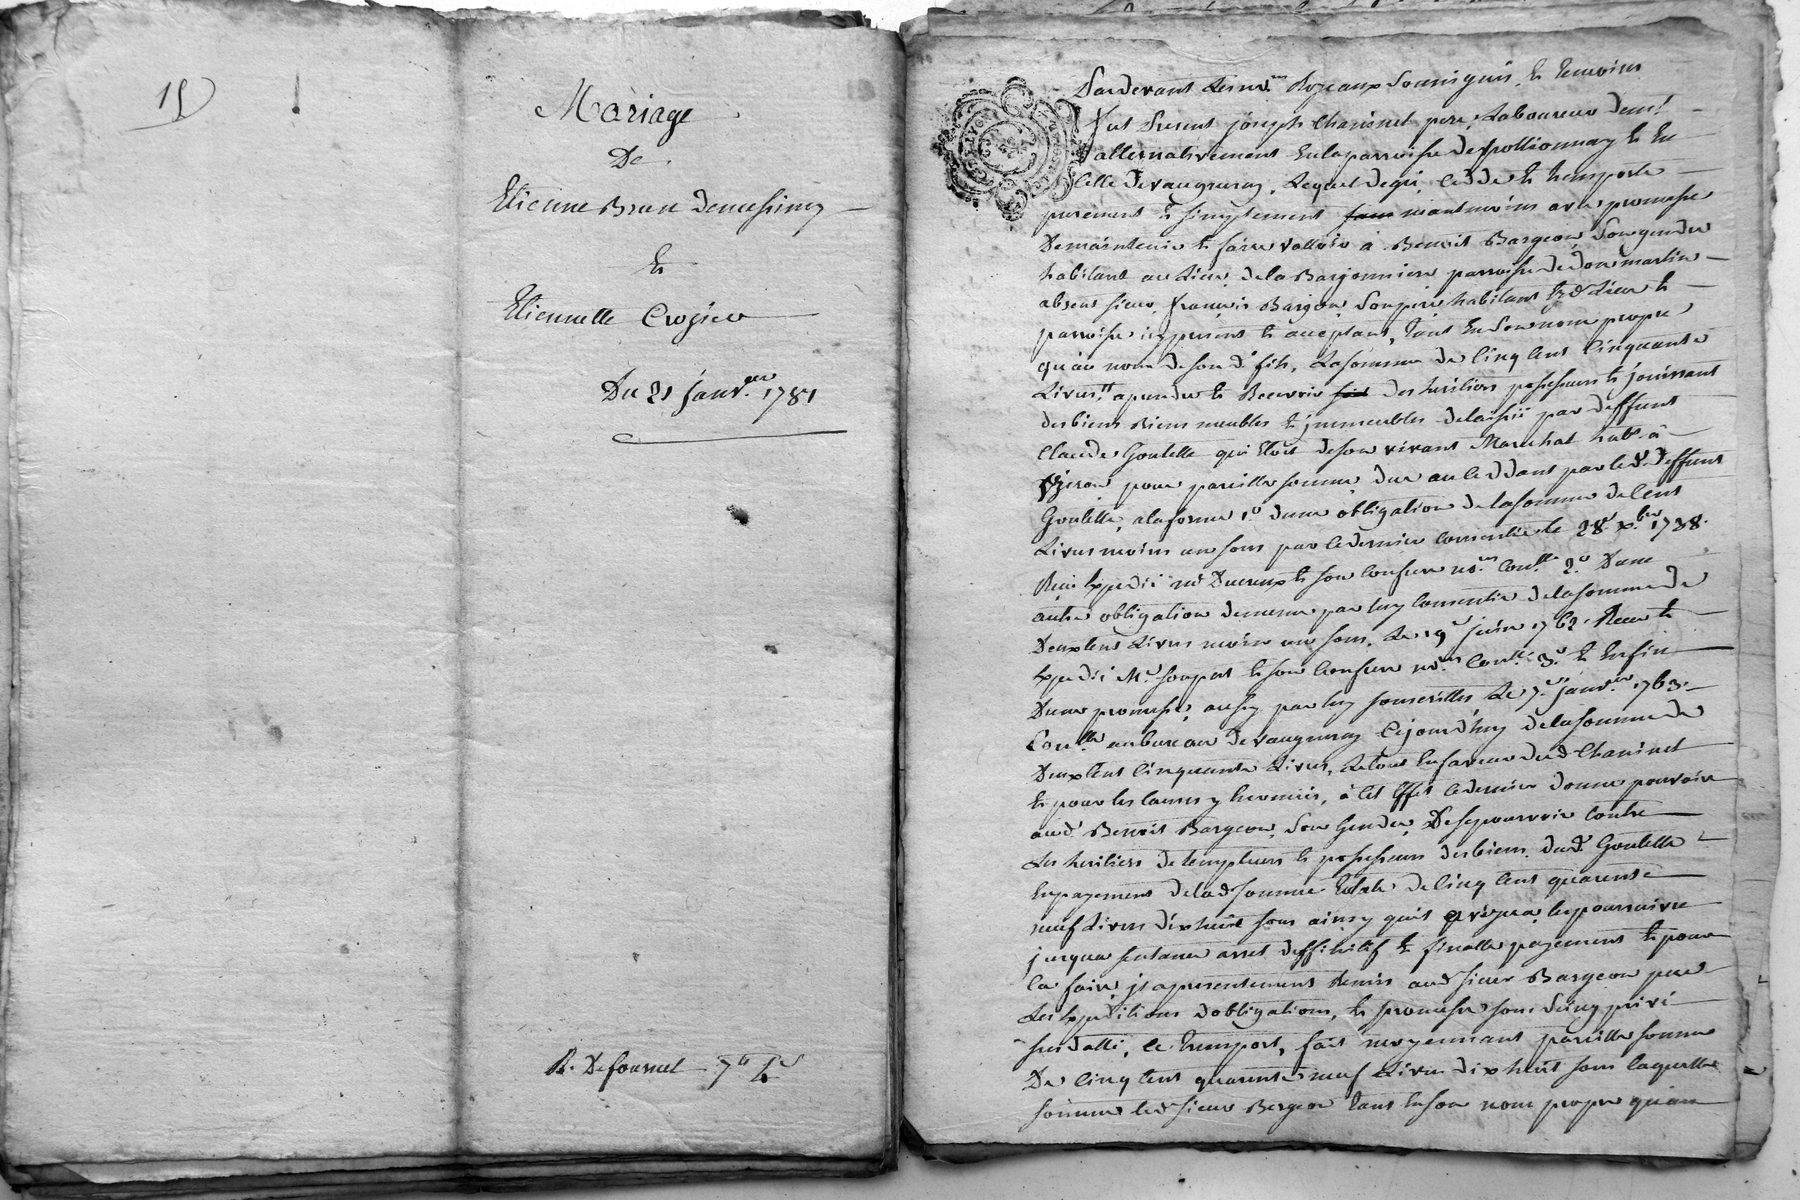 15
Mariage
De
Etienne Brun demessimy
Et
Etiennette Crozier
Du 21 janv.er 1781
R. Defournel
Pardevant Les no.res Royaux Soussignés, Et temoins
fut Present joseph Chavinet pere, Laboureur dem.t
alternativement En la parroisse de pollionnay Et En
Celle de vaugneray, Lequel de gré, cedde Et transporte
purement Et simplement neantmoins avec promesse
De maintenir Et faire valloir à Benoit Bargeon, Son gendre
habitant au Lieu de la Barjonniere parroisse de dommartin
absent sieur françois Bargeon Son pere habitant Lieu Et
parroisse icy present Et acceptant, tant En Son nom propre
qu'au nom de son d. fils, La somme de Cinq Cent Cinquante
Livres aprendre Et Recevoir des heritiers possesseurs Et jouissant
des biens meubles Et jmmeubles delaissés par deffunt
Claude Goutelle qui Etoit de son vivant Marechal hab. à
pour pareille somme due au Ceddant par led. deffunt
Goutelle, a la forme 1.o d'une obligation de la somme de Cent
Livres moins un sous par Ce dernier Consentie le 28.e x.bre 1738.
Expedié Et son Confrere no.res 2.o D'une
autre obligation de meme par luy Consentie de la somme de
Deux Cent Livres moins un sous, Le 19.e juin 1762. Recue Et
Expedié M.e Et son Confrere no.res 3.o Et Enfin
D'une promesse, aussy par luy souscritte, Le 7.e janv.er 1763.
au bureau de vaugneray Cejourd'huy de la somme de
Deux Cent Cinquante Livres, Le tout En faveur dud. Chavinet
Et pour les Causes y Enoncées, à Cet Effet Ce dernier donne pouvoir
aud. Benoit Bargeon, Son Gendre, De se pourvoir Contre
Les heritiers detempteurs Et possesseurs des biens dud. Goutelle
En payement de lad. somme totale de Cinq Cent quarente
neuf Livres dix huit sous ainsy qu'il avisera, les poursuivre
jusqua sentance arret deffinitif Et finalle payement Et pour
Ce faire, il a presentement Remis aud. sieur Bargeon pere
Les Expeditions d'obligations, Et promesse sous seing privé
susdatté, Ce transport, fait moyennant pareille somme
De Cinq Cent quarente neuf Livres dix huit sous laquelle
somme led. sieur Bargeon tant En son nom propre qu'au